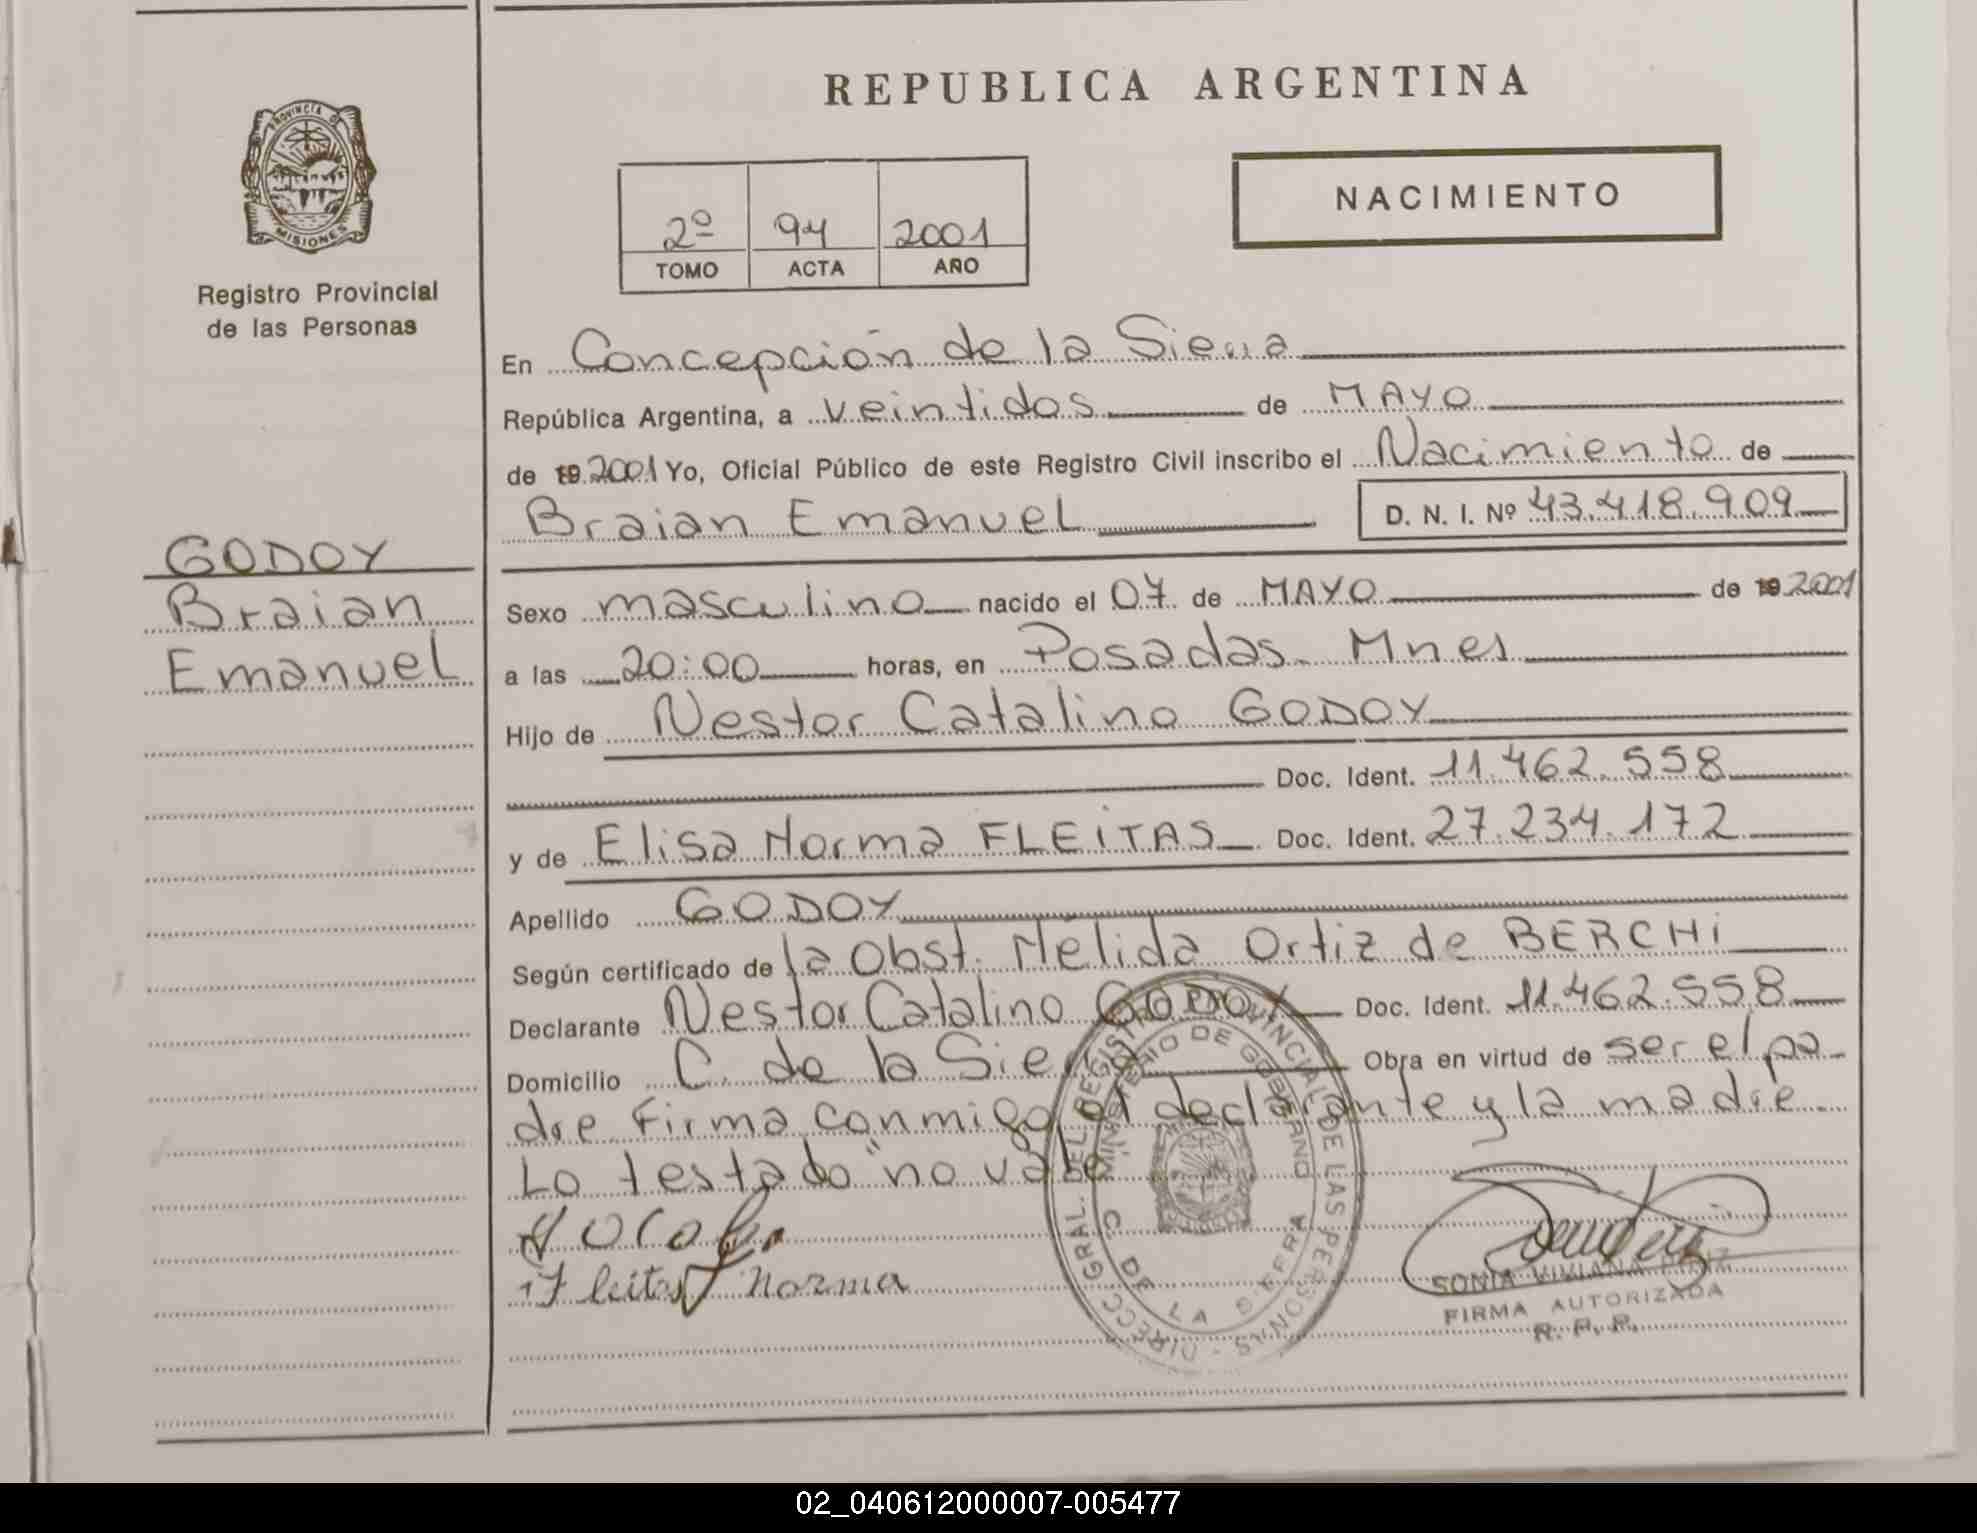 REPUBLICA ARGENTINA
PROVINCIA DE
MISIONES
Registro Provincial
de las Personas
NACIMIENTO
2º 94 2001
TOMO ACTA AÑO
En Concepción de la Sierra
República Argentina, a veintidos de MAYO
de 19 2001 Yo, Oficial Público de este Registro Civil inscribo el Nacimiento de
Braian Emanuel D. N. I. Nº 43.418.909
GODOY
Braian
Emanuel
Sexo masculino nacido el 07 de MAYO de 19 2001
a las 20:00 horas, en Posadas Mnes
Hijo de Nestor Catalino GODOY
Doc. Ident. 11.462.558
y de Elisa Norma FLEiTAS Doc. Ident. 27.234.172
Apellido GODOY
Según certificado de la Obst. Nelida Ortiz de BERCHi
Declarante Nestor Catalino GODOY Doc. Ident. 11.462.558
Domicilio C. de la Sierra Obra en virtud de ser el pa
dre Firma conmigo el declarante y la madre.
Lo testado "no vale
Fleitas Norma
DIRECC. GRAL. DEL REGISTRO PROVINCIAL DE LAS PERSONAS
MINISTERIO DE GOBIERNO
C. DE LA SIERRA
SONIA VIVIANA
FIRMA AUTORIZADA
R. P. P.
02_040612000007-005477